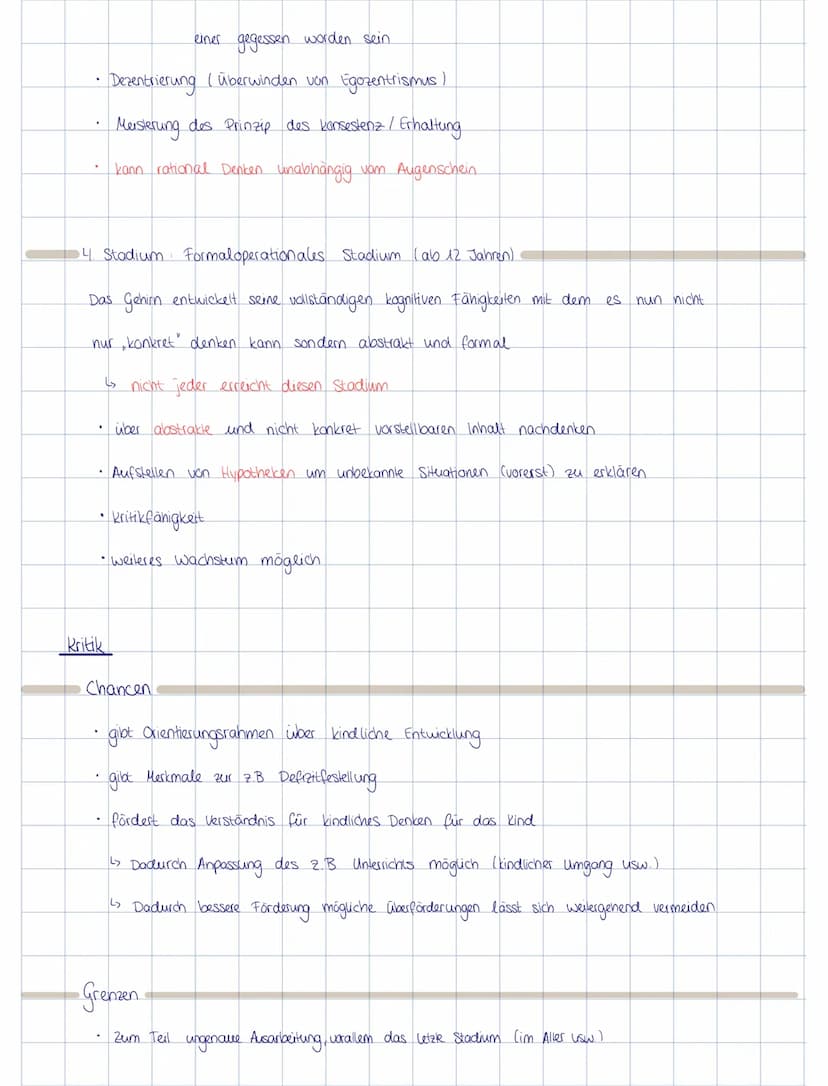 einer gegessen worden sein
• Dezentrierung (Überwinden von Egozentrismus)
• Meisterung des Prinzip des Konsestenz / Erhaltung
• kann rational Denken unabhängig vom Augenschein
4 Stadium: Formaloperationales Stadium (ab 12 Jahren)
Das Gehirn entwickelt seine vollständigen kognitiven Fähigkeiten mit dem es nun nicht
nur „konkret" denken kann sondern abstrakt und formal
↳ nicht jeder erreicht diesen Stadium
• über abstrakte und nicht konkret vorstellbaren Inhalt nachdenken
• Aufstellen von Hypotheken um unbekannte Situationen (vorerst) zu erklären
• Kritikfähigkeit
• weiteres Wachstum möglich
Kritik
Chancen
• gibt Orientierungsrahmen über kindliche Entwicklung
• gibt Merkmale zur z.B Defizitfestellung
• fördert das Verständnis für kindliches Denken für das Kind
↳ Dadurch Anpassung des z.B Unterrichts möglich (kindlicher Umgang usw.)
↳ Dadurch bessere Förderung mögliche Überförderungen lässt sich weitergehend vermeiden
Grenzen
• Zum Teil ungenaue Ausarbeitung, vorallem das letzte Stadium (im Alter usw)